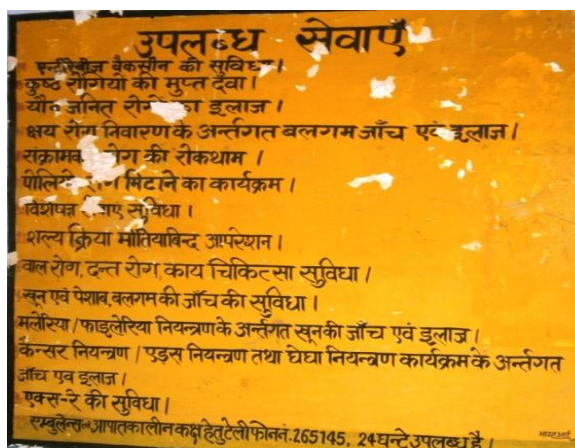 उपलब्ध सेवाएँ
एन्टीरेबीज वैक्सीन की सुविधा।
कुष्ठ रोगियों की मुफ्त दवा।
यौन जनित रोगों का इलाज।
क्षय रोग निवारण के अर्न्तगत बलगम जाँच एवं इलाज।
संक्रामक रोग की रोकथाम।
पोलियो रोग मिटाने का कार्यक्रम।
सुविधा।
शल्य क्रिया मोतियाबिन्द आपरेशन।
वाल रोग, दन्त रोग, काय चिकित्सा सुविधा।
खून एवं पेशाब, बलगम की जाँच की सुविधा।
मलेरिया / फाइलेरिया नियन्त्रण के अर्न्तगत खून की जाँच एवं इलाज।
केन्सर नियन्त्रण / एड्स नियन्त्रण तथा घेघा नियन्त्रण कार्यक्रम के अर्न्तगत
जाँच एवं इलाज।
एक्स-रे की सुविधा।
एम्बुलेन्स आपातकालीन कक्ष हेतु टेलीफोन नं. 265145, 24 घन्टे उपलब्ध है।